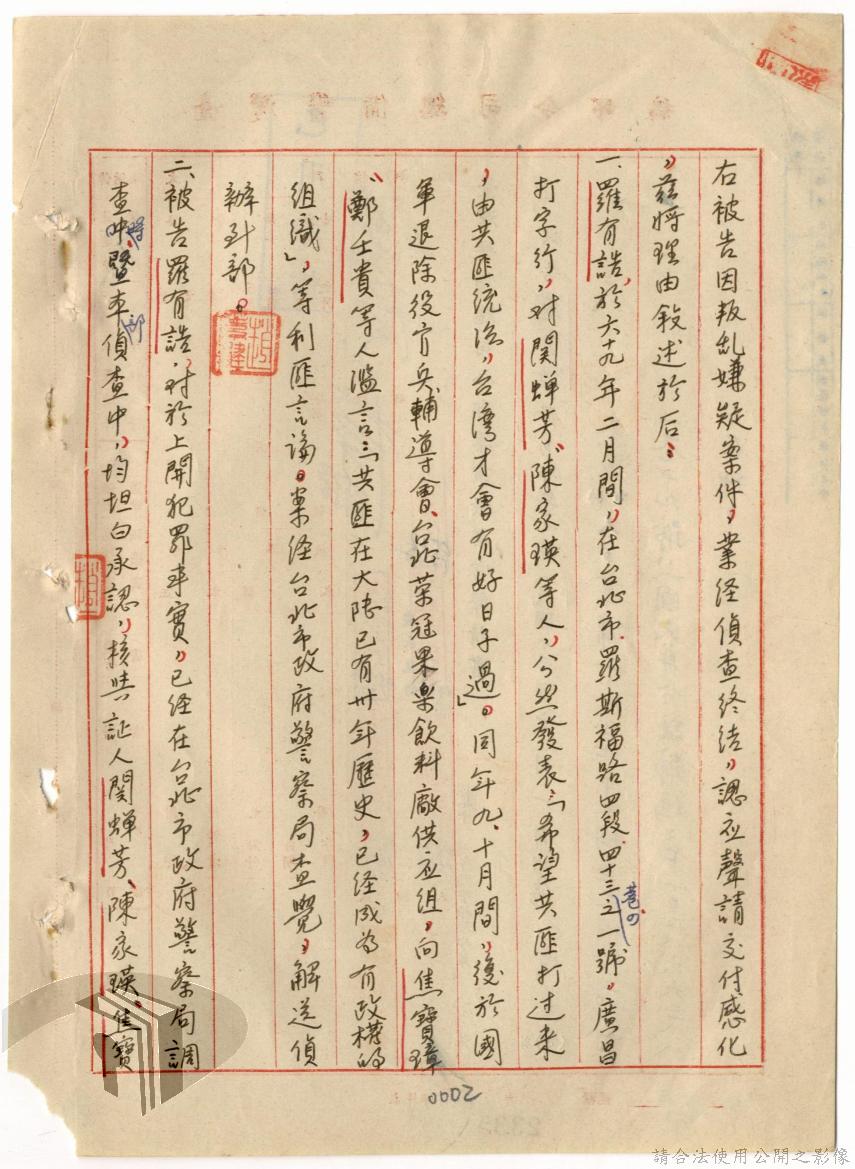 右被告因叛乱嫌疑案件，業经偵查终结，認应聲請交付感化
，茲將理由敘述於后：
一、羅有誥，於六十九年二月間，在台北市羅斯福路四段四十三巷四之一號，廣昌
打字行，对関蟬芳、陳家瑛等人，公然發表：「希望共匪打过来
，由共匪统治，台湾才會有好日子過」。同年九、十月間，復於國
軍退除役官兵輔導會、台北荣冠果樂飲料廠供应组，向焦寶璋
、鄭壬貴等人濫言：「共匪在大陸已有卅年歷史，已经成為有政構的
组織」，等利匪言論。案经台北市政府警察局查覺，解送偵
辦到部。
二、被告羅有誥，对於上開犯罪事實，已经在台北市政府警察局調
查時、暨本部偵查中，均坦白承認，核與証人関蟬芳、陳家瑛、焦寶
0002
請合法使用公開之影像